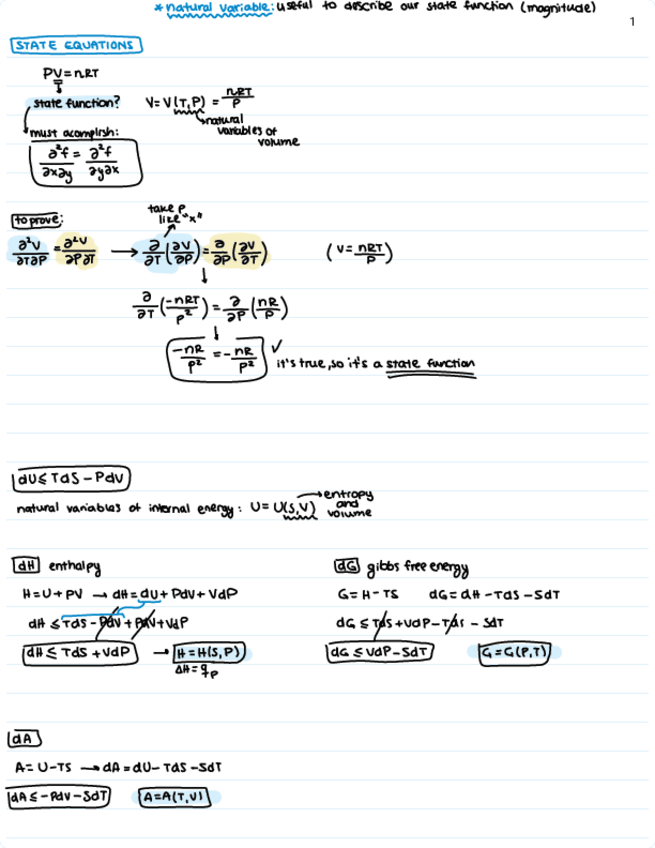 * natural variable: useful to describe our state function (magnitude)
1
STATE EQUATIONS
PV = nRT
state function? V = V(T, P) = nRT/P
natural variables of volume
must acomplish:
∂²f/∂x∂y = ∂²f/∂y∂x
to prove:
take P like "x"
∂²V/∂T∂P = ∂²V/∂P∂T → ∂/∂T(∂V/∂P) = ∂/∂P(∂V/∂T) (V = nRT/P)
∂/∂T(-nRT/P²) = ∂/∂P(nR/P)
-nR/P² = -nR/P² ✓
it's true, so it's a state function
dU ≤ TdS - PdV
natural variables of internal energy: U = U(S,V) → entropy and volume
dH enthalpy
H = U + PV → dH = dU + PdV + VdP
dH ≤ TdS - PdV + PdV + VdP
dH ≤ TdS + VdP → H = H(S, P)
ΔH = qp
dG gibbs free energy
G = H - TS dG = dH - TdS - SdT
dG ≤ TdS + VdP - TdS - SdT
dG ≤ VdP - SdT G = G(P,T)
dA
A = U - TS → dA = dU - TdS - SdT
dA ≤ - PdV - SdT A = A(T, V)